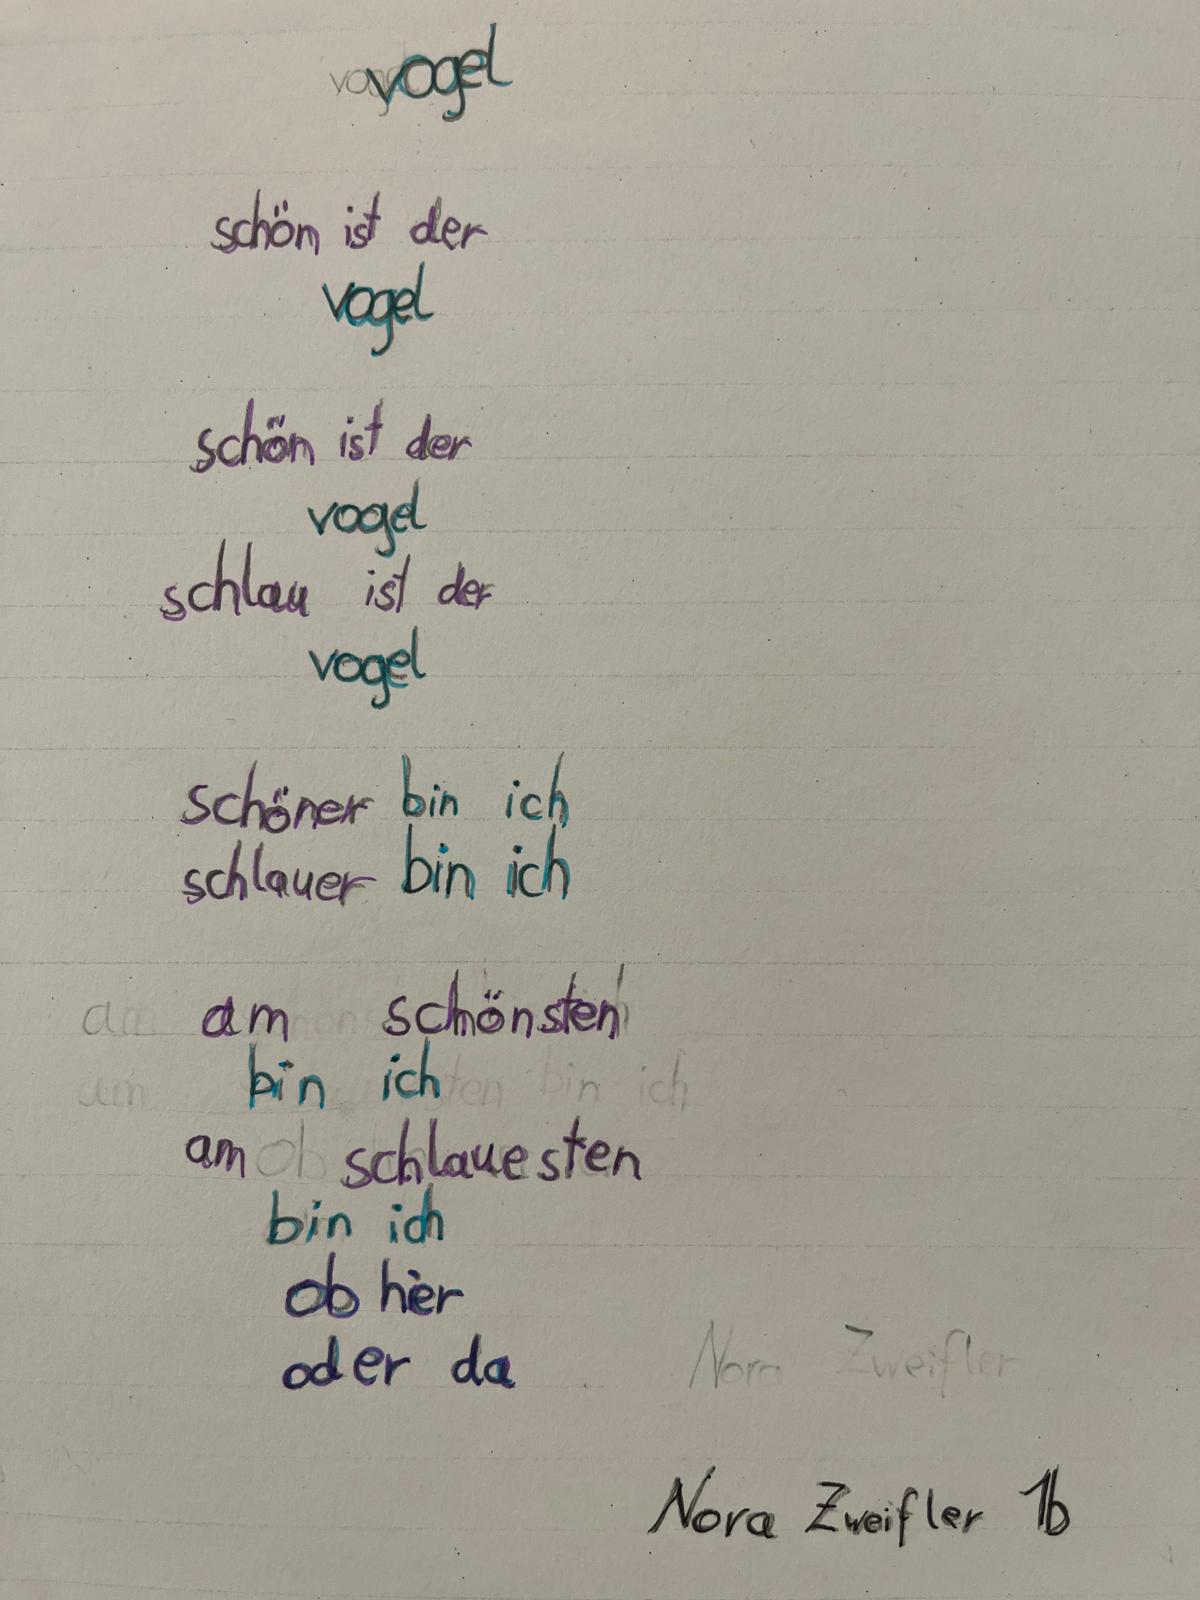 vogel
schön ist der
vogel
schön ist der
vogel
schlau ist der
vogel
schöner bin ich
schlauer bin ich
am schönsten
bin ich
am schlauesten
bin ich
ob hier
oder da
Nora Zweifler
Nora Zweifler 1b